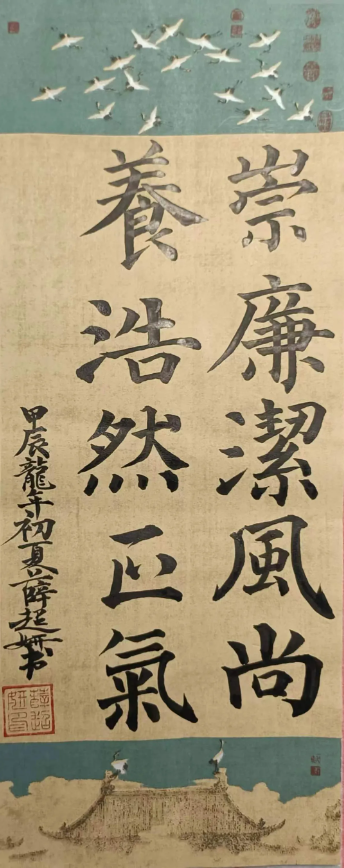 崇廉潔風尚
養浩然正氣
甲辰龍年初夏薛超妍书